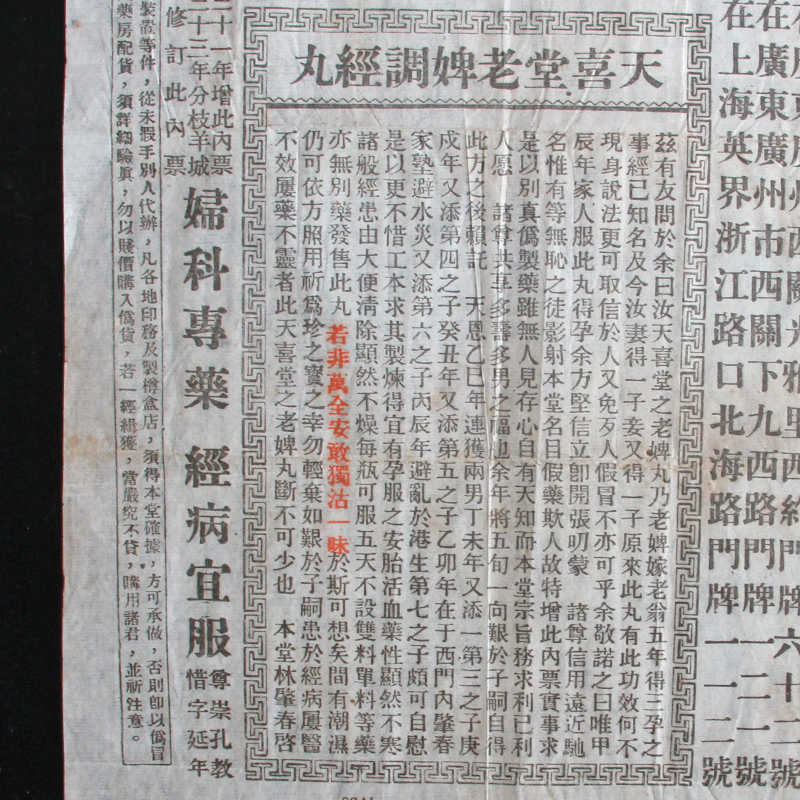 在上海英界浙江路口北海路門牌一一二號
天喜堂老婢調經丸
茲有友問於余曰汝天喜堂之老婢丸乃老婢嫁老翁五年得三孕之
事經已知名及今汝妻得一子妾又得一子原來此丸有此功效何不
現身說法更可取信於人又免歹人假冒不亦可乎余敬諾之曰唯甲
辰年家人服此丸得孕余方堅信立卽開張叨蒙 諸尊信用遠近馳
名惟有等無恥之徒影射本堂名目假藥欺人故特增此內票實事求
是以別真僞製藥雖無人見存心自有天知而本堂宗旨務求利已利
人愿 諸尊共享多壽多男之福也余年將五旬 向艱於子嗣自得
此方之後賴託 天恩乙巳年連獲兩男丁未年又添一第三之子庚
戍年又添第四之子癸丑年又添第五之子乙卯年在于西門內肇春
家塾避水災又添第六之子丙辰年避亂於港生第七之子頗可自慰
是以更不惜工本求其製煉得宜有孕服之安胎活血藥性顯然不寒
諸般經患由大便清除顯然不燥每瓶可服五天不設雙料單料等藥
亦無別藥發售此丸若非萬全安敢獨沽一味於斯可想矣間有潮濕
仍可依方照用祈爲珍之寶之幸勿輕棄如艱於子嗣患於經病屢醫
不效屢藥不靈者此天喜堂之老婢丸斷不可少也 本堂林肇春啓
二十一年增此內票
二十三年分枝羊城
修訂此內票
婦科專藥 經病宜服
尊崇孔教
惜字延年
裝置等件，從未假手別人代辦，凡各地印務及製樽盒店，須得本堂確據，方可承做，否則卽以僞冒
藥房配貨，須詳細驗眞，勿以賤價購入僞貨，若一經緝獲，當嚴究不貸，購用諸君，並祈注意。